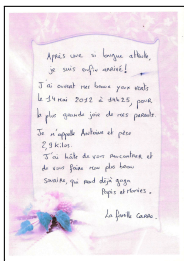 Après une si longue attente,
je suis enfin arrivé!
J'ai ouvert mes beaux yeux verts
le 14 mai 2012 à 14h25, pour
la plus grande joie de mes parents.
Je m'appelle Antoine et pèse
2,9 kilos.
J'ai hâte de vous rencontrer et
de vous faire mon plus beau
sourire, qui rend déjà gaga
Papis et Mamies.
La famille